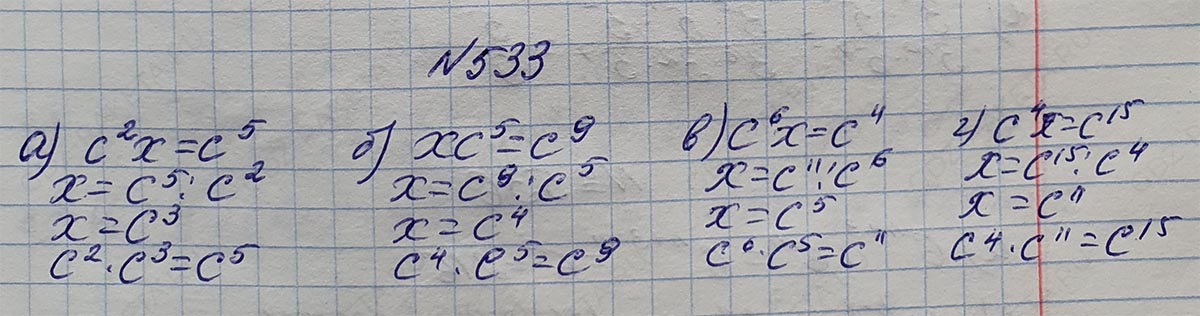 №533
а) c²x=c⁵
x=c⁵:c²
x=c³
c²·c³=c⁵
б) xc⁵=c⁹
x=c⁹:c⁵
x=c⁴
c⁴·c⁵=c⁹
в) c⁶x=c¹¹
x=c¹¹:c⁶
x=c⁵
c⁶·c⁵=c¹¹
г) c⁴x=c¹⁵
x=c¹⁵:c⁴
x=c¹¹
c⁴·c¹¹=c¹⁵